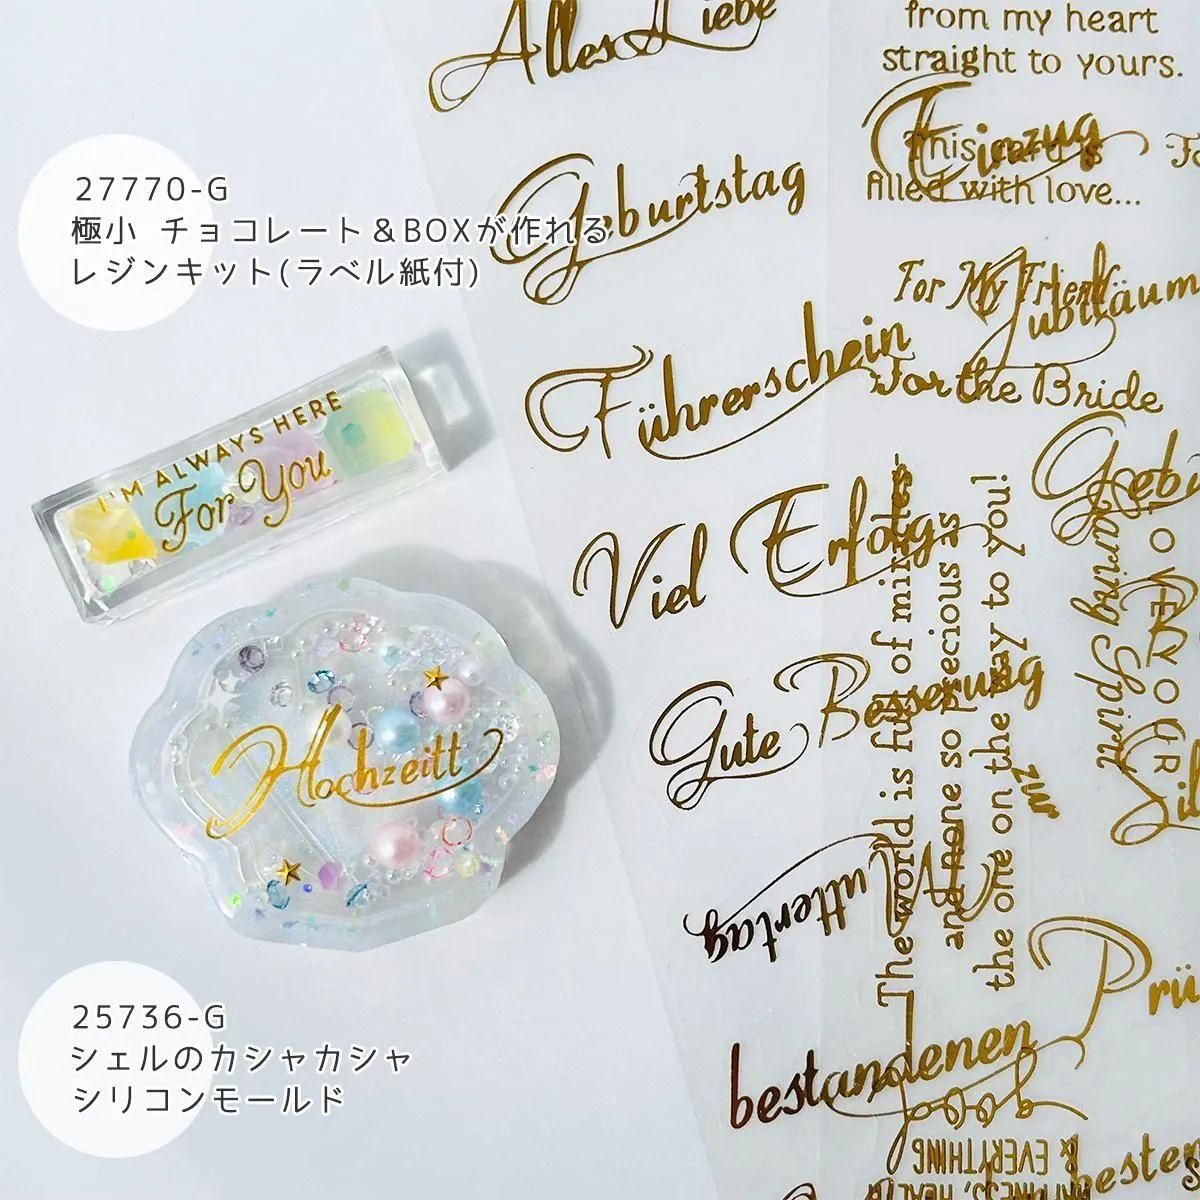 27770-G
極小 チョコレート＆BOXが作れる
レジンキット(ラベル紙付)
I'M ALWAYS HERE
For You
Hochzeitt
25736-G
シェルのカシャカシャ
シリコンモールド
Alles Liebe
Geburtstag
Führerschein
Viel Erfolg
Gute Besserung
Muttertag
zur
bestandenen
from my heart
straight to yours.
Einzug
This card is
filled with love...
For My Friend
Jubiläum
For the Bride
The world is full of minutes
and none so precious as
the one on the way to you!
LOVE
YOUR
good
& EVERYTHING
HAPPINESS, HEALTH
besten